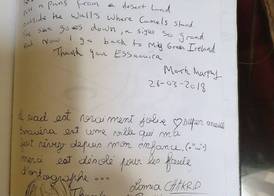 from a desert land
outside the walls where Camels stand
sun goes down, a sight so grand
And now I go back to my Green Ireland
Thank you Essaouira
Mark Murphy
26-03-2018
Le riad est vraiment jolie ♡
est une ville qui m'a
fait rêvez depuis mon enfance
merci est désolé pour les faute
d'orthographe